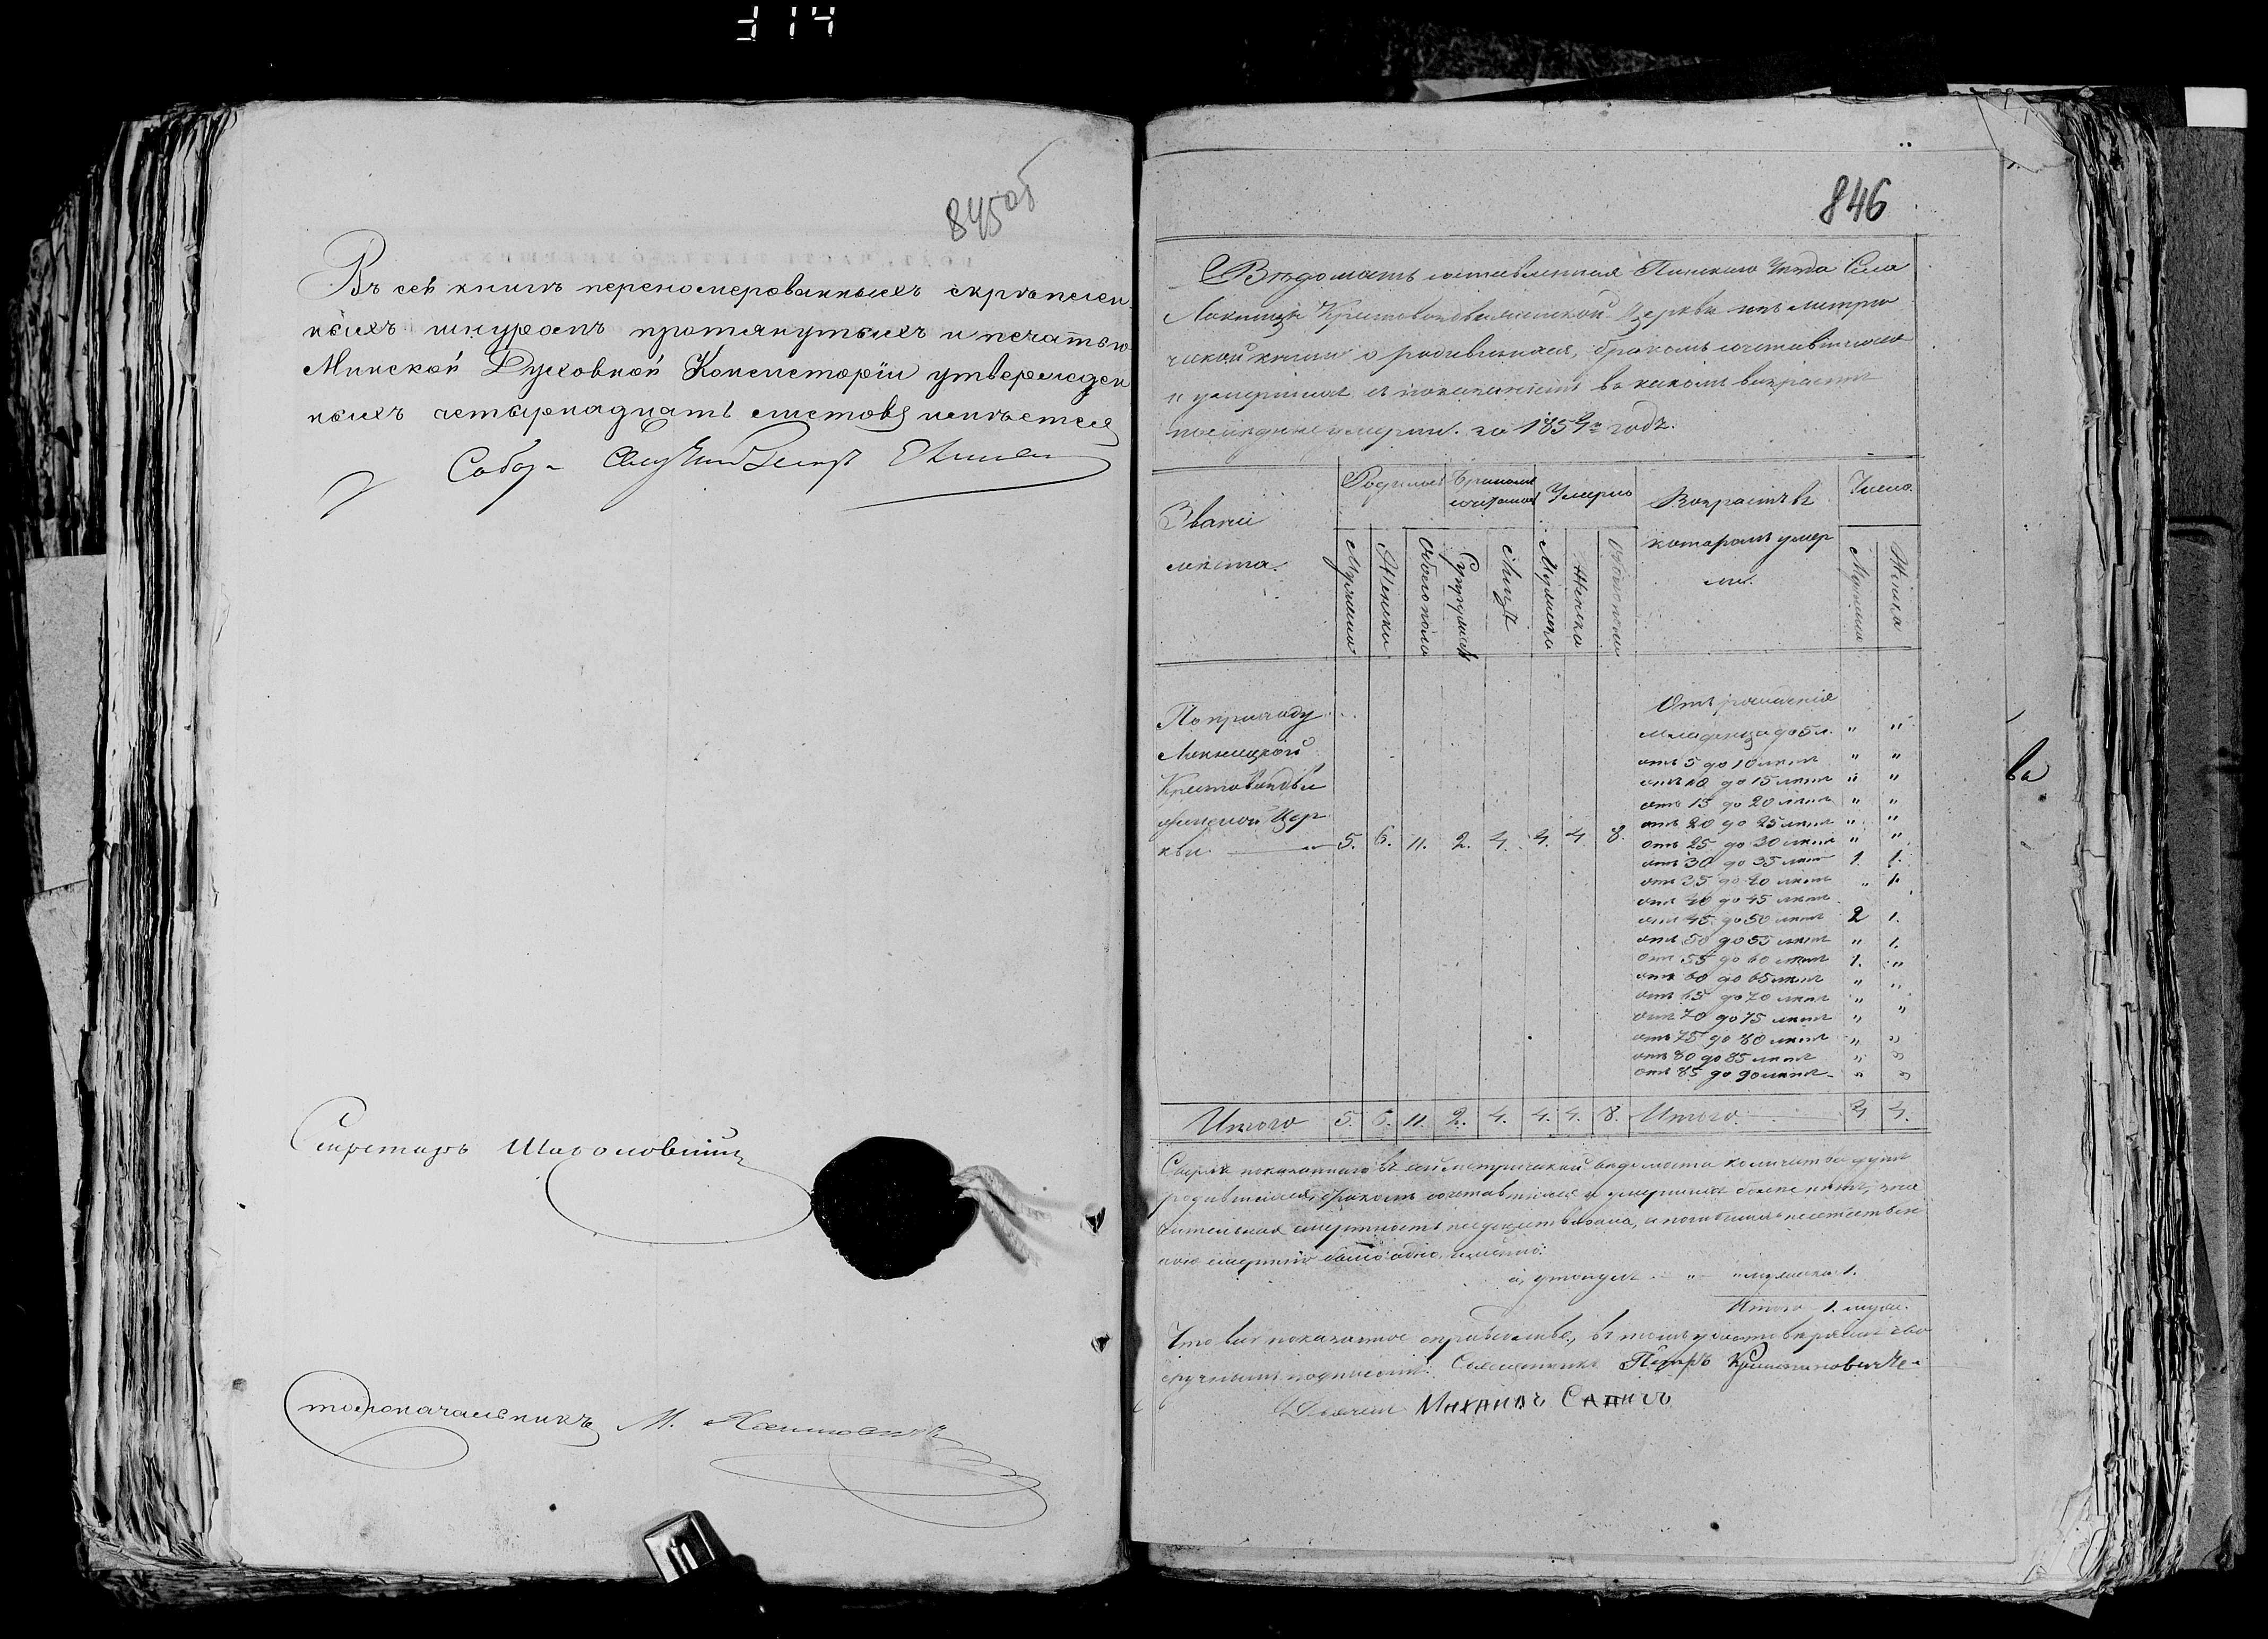 314
845об
Въ сей книгѣ переномерованныхъ скрѣплен
ныхъ шнуромъ протянутыхъ и печатью
Минской Духовной Консисторіи утвержден
ныхъ четырнадцать листовъ имѣется
Секретарь
Столоначальникъ М.
846
Вѣдомость составленная Пинскаго Уѣзда Села
Крестовоздвиженской Церкви изъ метри
ческой книги о родившихся, бракомъ сочетавшихся
и умершихъ съ показаніемъ въ какомъ возрастѣ
послѣдніе умерли. за 1854й годъ.
Званіе
мѣста.
Родилось
Бракомъ
сочеталось
Умерло
Возрастъ въ
которомъ умер
ли.
Число.
Мужеска
Женска
Обоего пола
Супружествъ
Лицъ
Мужеска
Женска
Обоего пола
Мужеска
Женска
По приходу
Крестовоздви
женской Цер
кви 5. 6. 11. 2. 4. 4. 4. 8.
Отъ рожденія
младенца до 5 л. " "
отъ 5 до 10 лѣтъ " "
отъ 10 до 15 лѣтъ " "
отъ 15 до 20 лѣтъ " "
отъ 20 до 25 лѣтъ " "
отъ 25 до 30 лѣтъ " "
отъ 30 до 35 лѣтъ 1. 1.
отъ 35 до 40 лѣтъ " 1.
отъ 40 до 45 лѣтъ
отъ 45 до 50 лѣтъ 2 1.
отъ 50 до 55 лѣтъ " 1.
отъ 55 до 60 лѣтъ 1. "
отъ 60 до 65 лѣтъ " "
отъ 65 до 70 лѣтъ " "
отъ 70 до 75 лѣтъ " "
отъ 75 до 80 лѣтъ " "
отъ 80 до 85 лѣтъ " "
отъ 85 до 90 лѣтъ " "
Итого 5. 6. 11. 2. 4. 4. 4. 8. Итого 4. 4.
Сверхъ показаннаго въ сей метрической вѣдомости количества душъ
родившихся, бракомъ сочетавшихся и умершихъ болѣе нѣтъ, зна
чительная смертность не существовала, а погибшихъ неестествен
ною смертію было одно, именно:
а, утонулъ " мужеска 1.
Итого 1. муж.
Что все показанное справедливо, въ томъ удостовѣряемъ сво
еручнымъ подписомъ. Священникъ Петръ
Михаилъ Сапичъ
ва